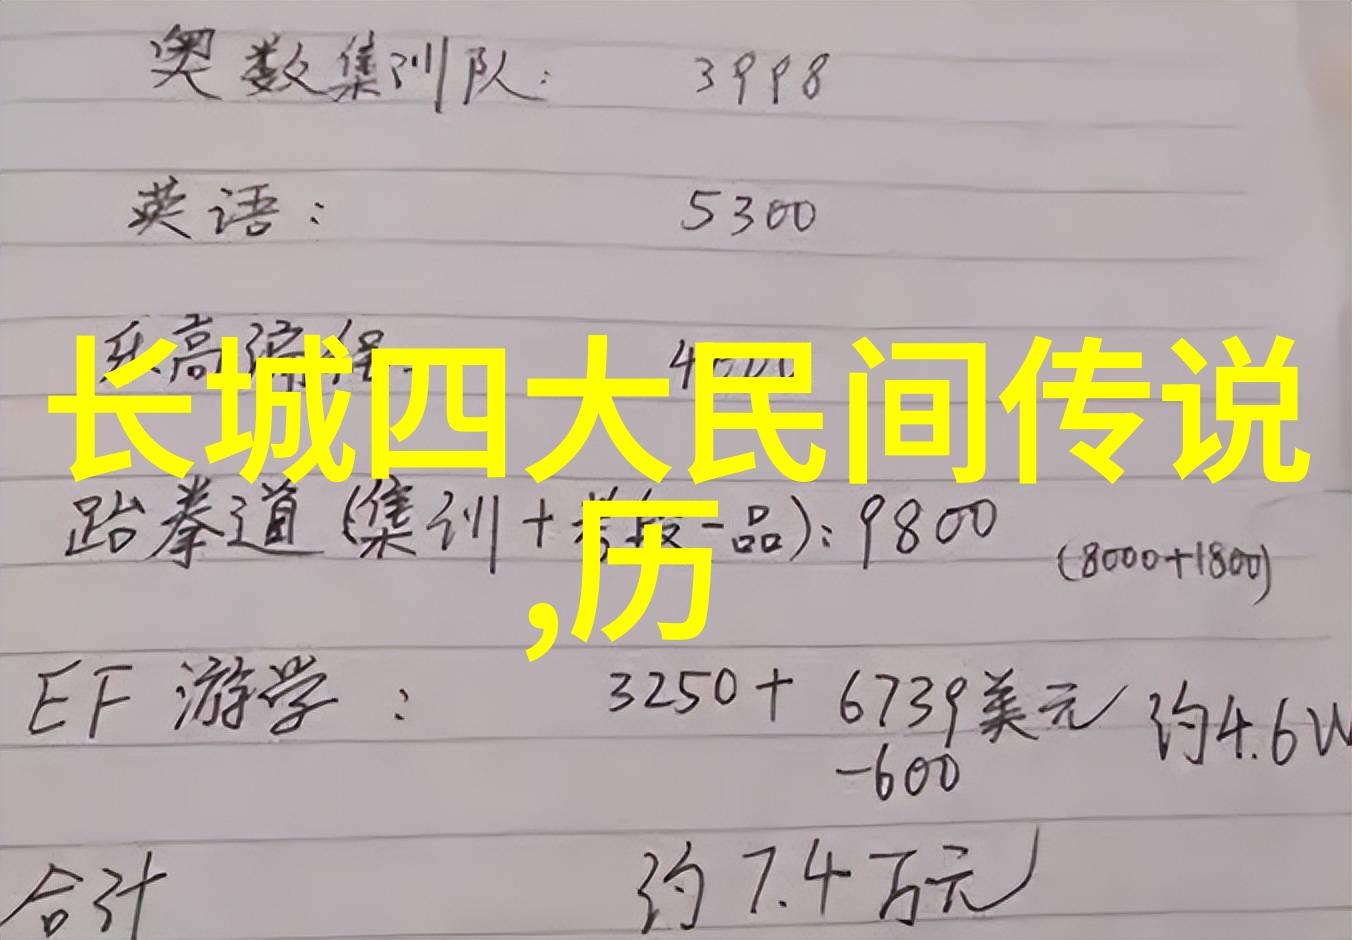 奥数集训队: 3998
英语: 5300
乐高编程
长城四大民间传说
,历
跆拳道(集训+考段一品): 9800 (8000+1800)
EF 游学: 3250+ 6739美元 约4.6W
-600
合计 约7.4万元